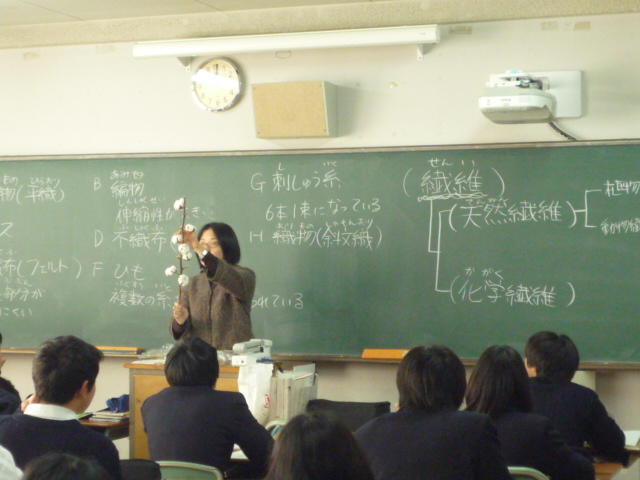 物(平織)
布(フェルト)
B 編物
伸縮性が
D 不織布
F ひも
複数の糸
れている
G 刺しゅう糸
6本1束になっている
H 織物(斜文織)
(繊維)
(天然繊維)
(化学繊維)
植物
動物